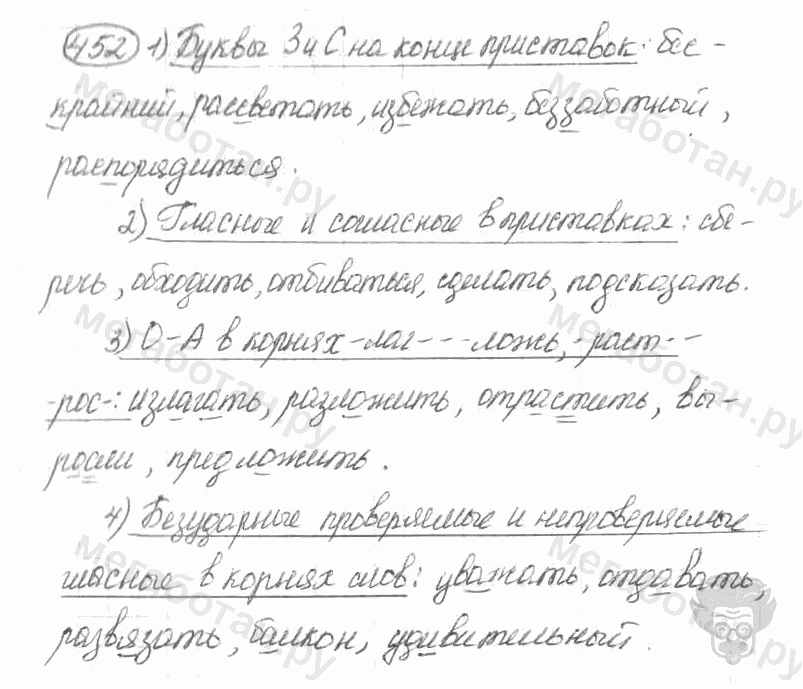 452 1) Буквы З и С на конце приставок: бес-
крайний, рассветать, избежать, беззаботный,
распорядиться.
2) Гласные и согласные в приставках: сбе-
речь, обходить, отбиваться, сделать, подсказать.
3) О-А в корнях -лаг- - -ложь, -раст- -
-рос-: излагать, разложить, отрастить, вы-
росли, предложить.
4) Безударные проверяемые и непроверяемые
гласные в корнях слов: уважать, отдавать,
развязать, балкон, удивительный.
мегаботан.ру